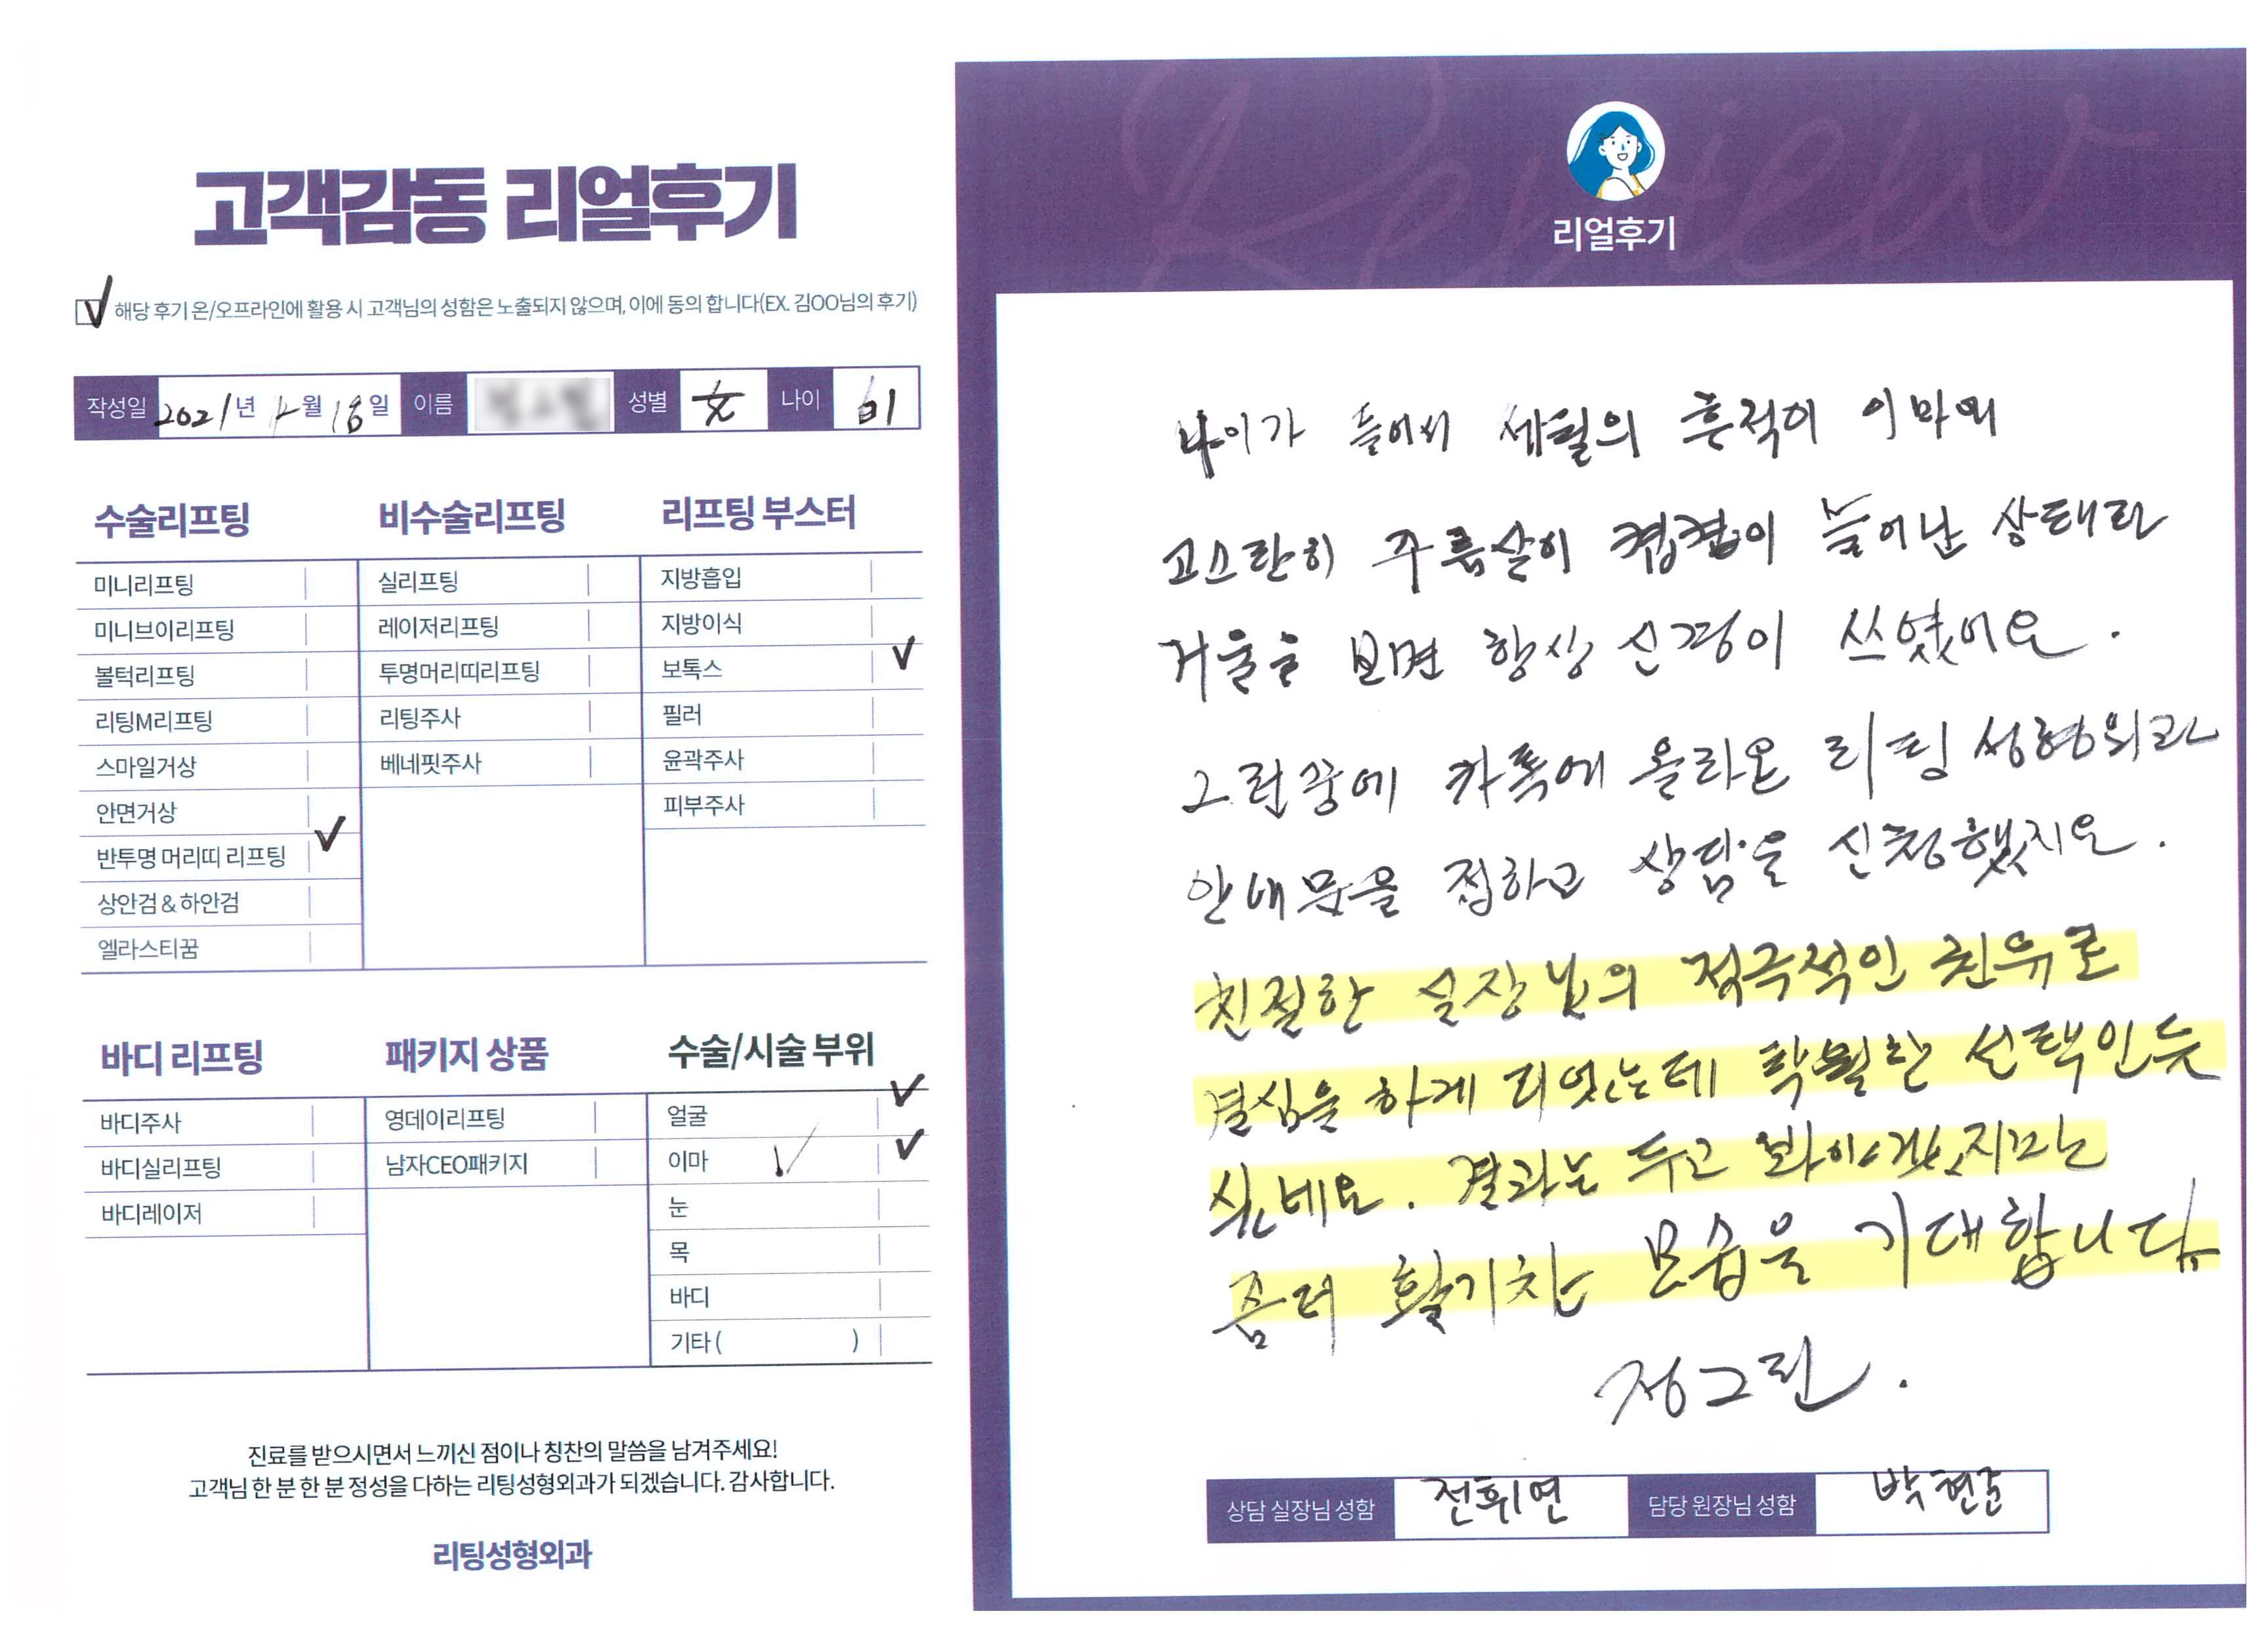 고객감동 리얼후기
해당 후기 온/오프라인에 활용 시 고객님의 성함은 노출되지 않으며, 이에 동의 합니다(EX. 김OO님의 후기)
작성일 2021년 월 18일 이름 성별 女 나이 61
수술리프팅
미니리프팅
미니브이리프팅
볼턱리프팅
리팅M리프팅
스마일거상
안면거상
반투명 머리띠 리프팅
상안검&하안검
엘라스티꿈
비수술리프팅
실리프팅
레이저리프팅
투명머리띠리프팅
리팅주사
베네핏주사
리프팅 부스터
지방흡입
지방이식
보톡스
필러
윤곽주사
피부주사
바디 리프팅
바디주사
바디실리프팅
바디레이저
패키지 상품
영데이리프팅
남자CEO패키지
수술/시술 부위
얼굴
이마
눈
목
바디
기타 ( )
진료를 받으시면서 느끼신 점이나 칭찬의 말씀을 남겨주세요!
고객님 한 분 한 분 정성을 다하는 리팅성형외과가 되겠습니다. 감사합니다.
리팅성형외과
Review
리얼후기
나이가 들어서 세월의 흔적이 이마에
고스란히 주름살이 켭켭이 늘어난 상태라
거울을 보면 항상 신경이 쓰였어요.
그런중에 카톡에 올라온 리팅 성형외과
안내문을 접하고 상담을 신청했지요.
친절한 실장님의 적극적인 권유로
결심을 하게 되었는데 탁월한 선택인듯
싶네요. 결과는 두고 봐야겠지만
좀더 활기찬 모습을 기대합니다
정그린.
상담 실장님 성함 전휘연 담당 원장님 성함 박현준